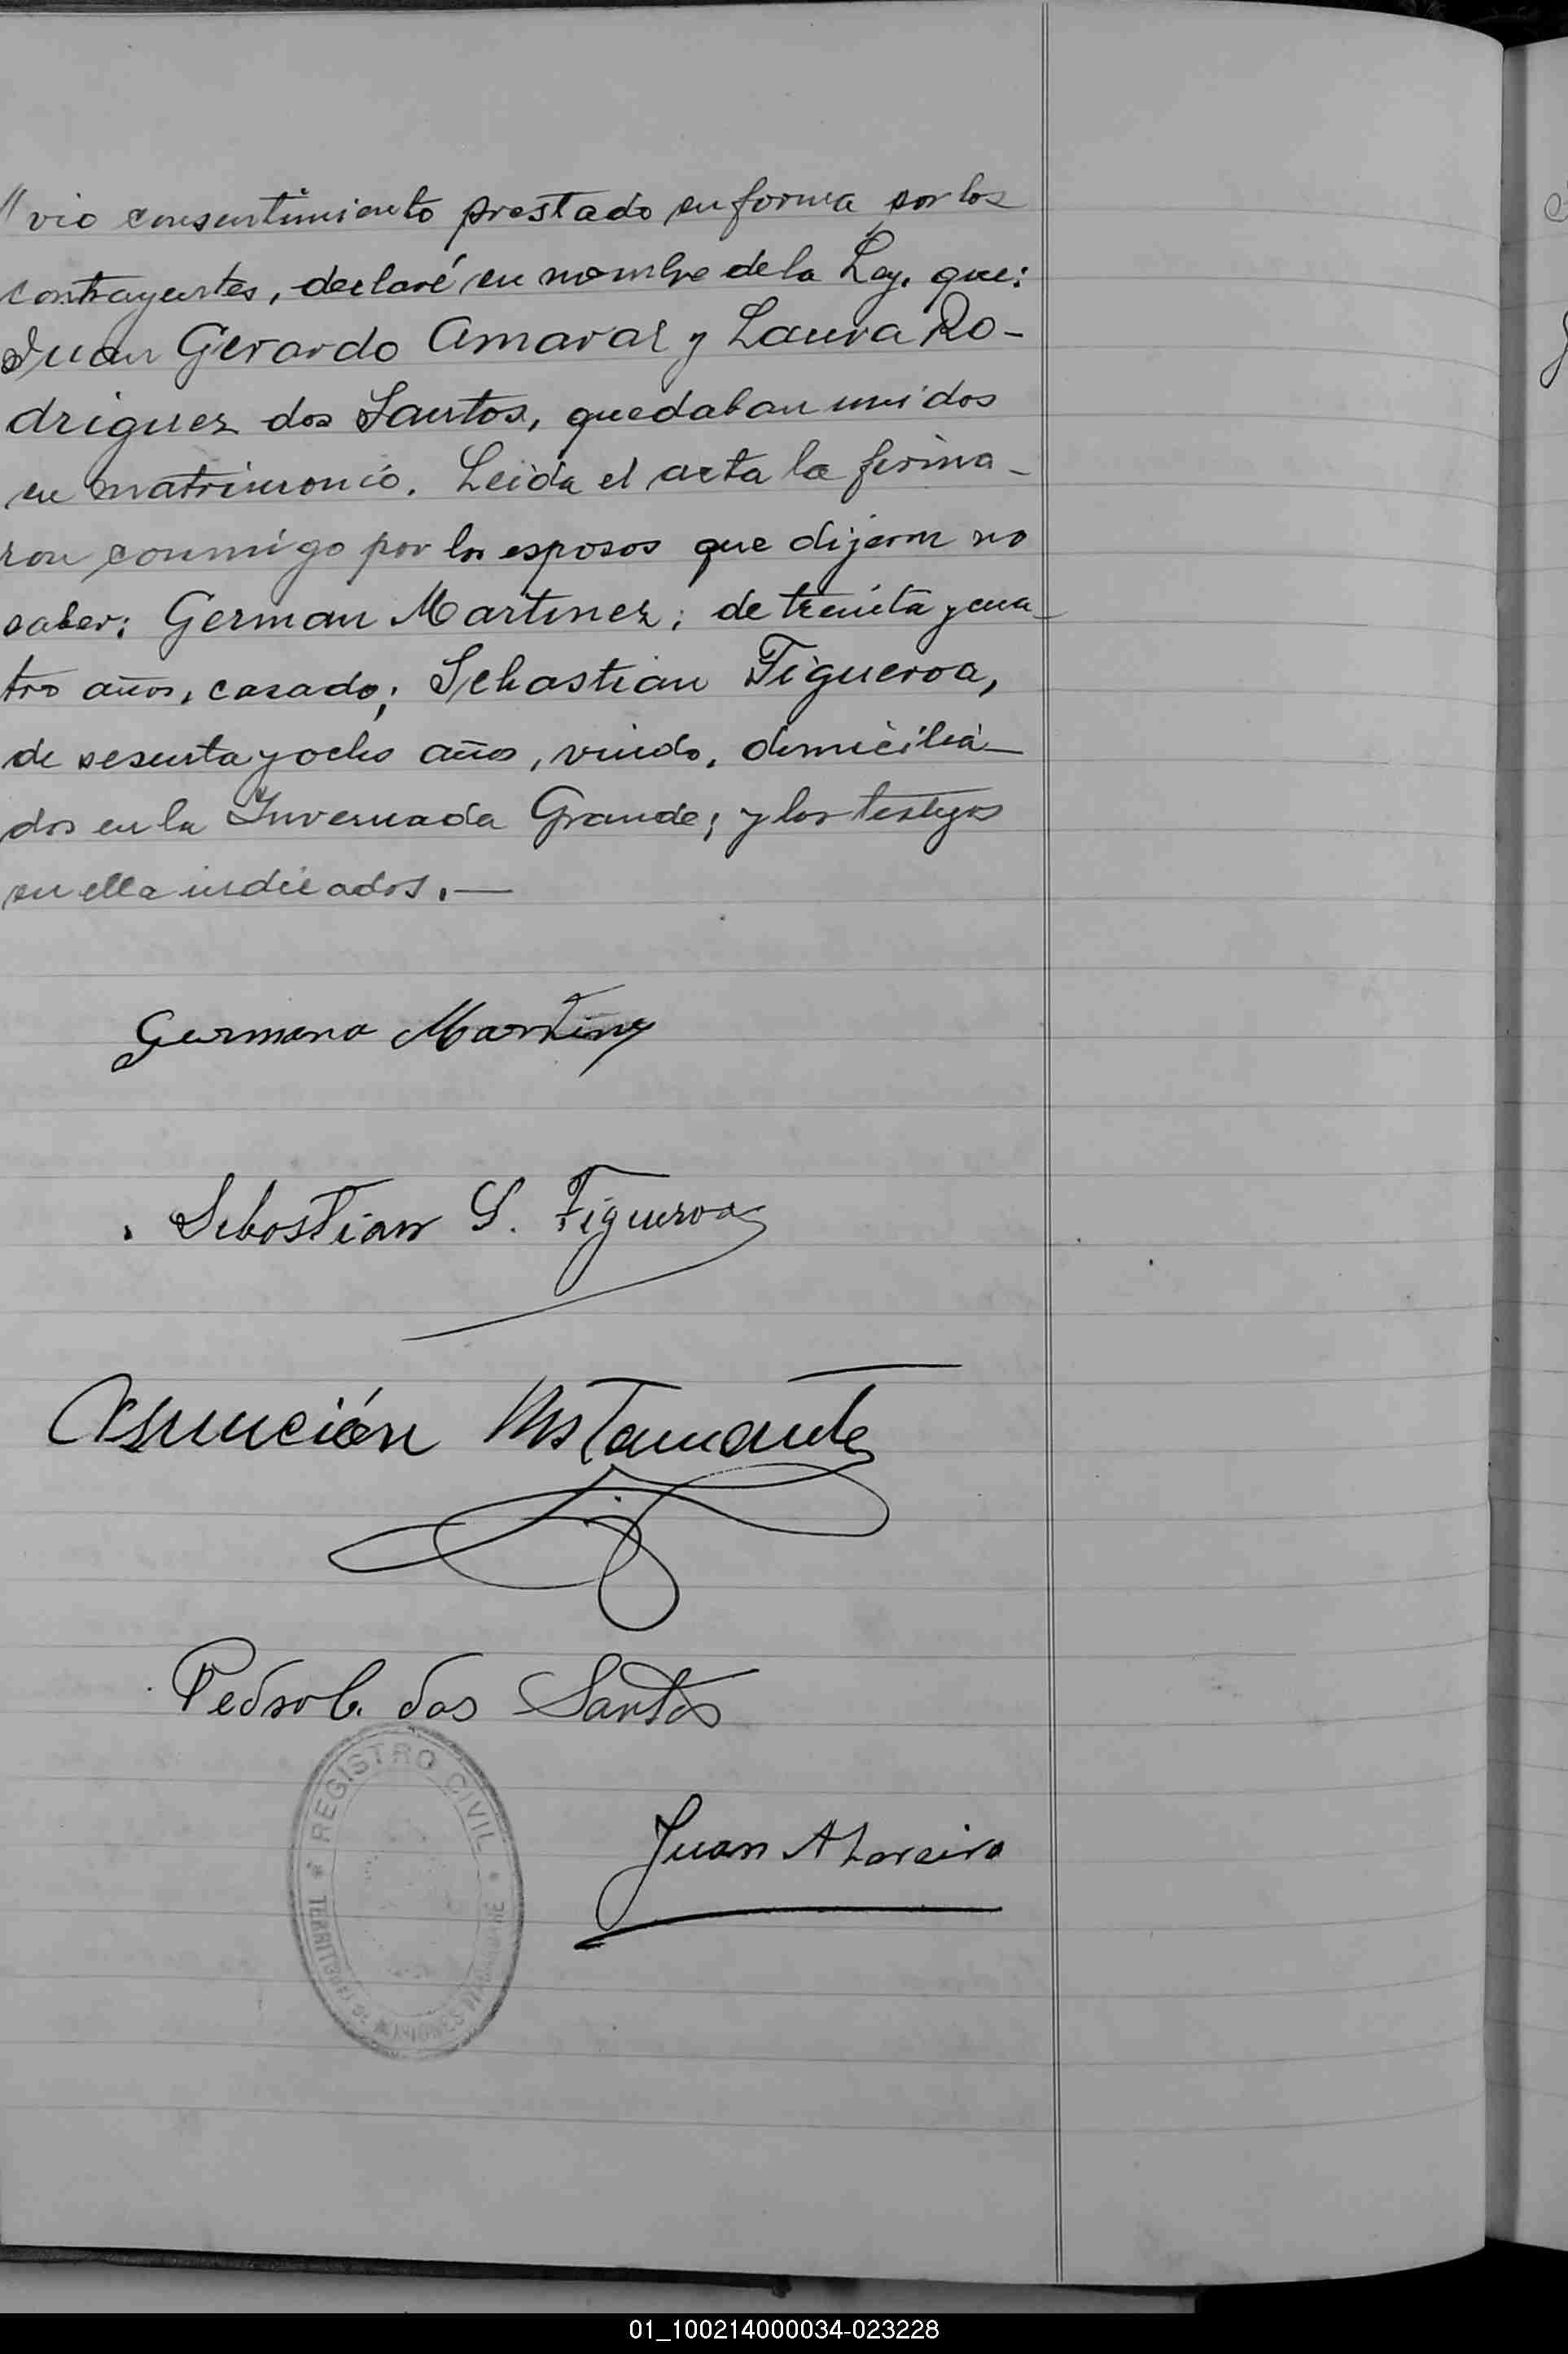 "vio consentimiento prestado en forma por los
contrayentes, declaré en nombre de la Ley, que:
Juan Gerardo Amaral y Laura Ro-
driguez dos Santos, quedaban unidos
en matrimonio. Leida el acta la firma-
ron conmigo por los esposos que dijeron no
saber: German Martinez; de treinta y cua-
tro años, casado; Sebastian Figueroa,
de sesenta y ocho años, viudo, domicilia-
dos en la Invernada Grande; y los testigos
en ella indicados.—
Germano Martinz
Sebostian S. Figueroa
Asunción
Pedro C. dos Santos
REGISTRO CIVIL
TERRITORIO DE MISIONES
Juan A Loreiro
01_100214000034-023228